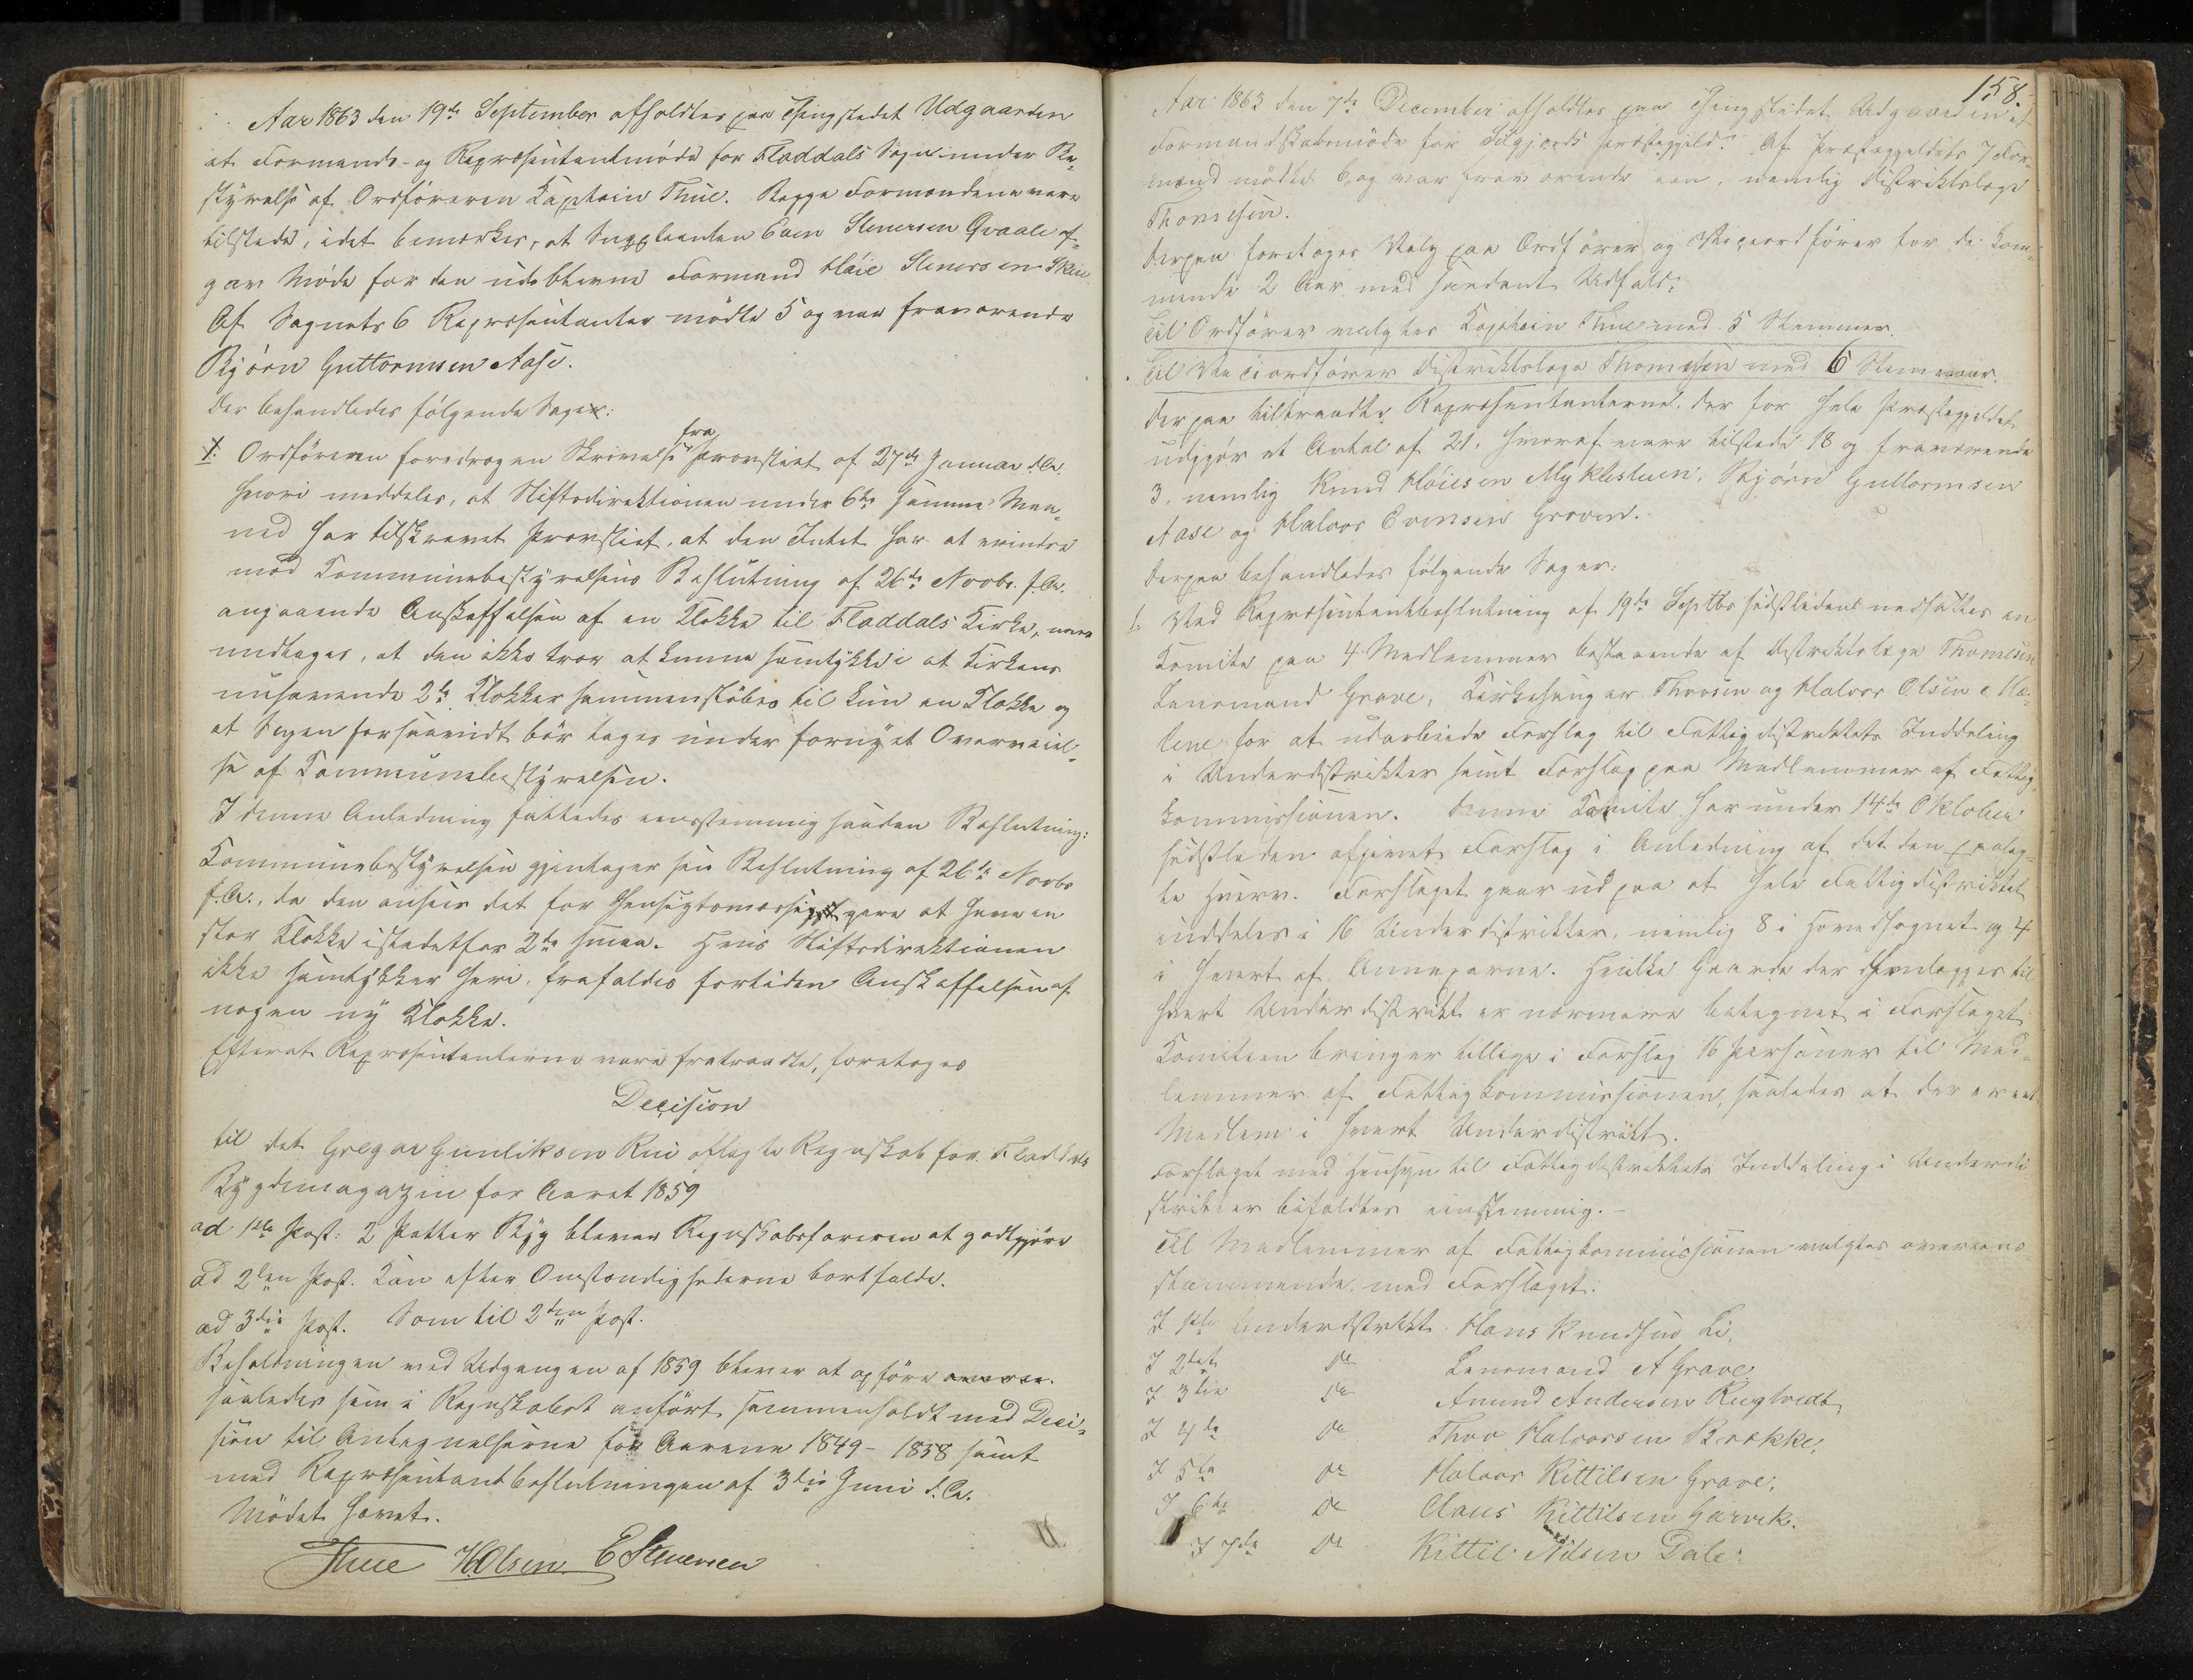 Aar 1863 den 19de September afholdtes paa Thingstedet Udgaarden
et Formands- og Repræsentantmøde for Fladdals Sogn under Be-
styrelse af Ordføreren Kaptein Thue. Begge Formændene vare
tilstede, idet bemærkes, at Suppleanten Even Stenersen Qvaale af-
gav Møde for den udeblevne Formand Høie Stenersen Skeie
Af Sognets 6 Repræsentanter mødte 5 og var fraværende
Bjørn Guttormsen Aase.
Der behandledes følgende Sager:
1. Ordføreren foredrog en Skrivelse fra Provstiet af 27de Januar d.A.
hvori meddeles, at Stiftsdirektionen under 6te samme Maa-
ned har tilskrevet Provstiet, at den Intet har at erindre
mod Kommunebestyrelsens Beslutning af 26de Novbr. f.A.
angaaende Anskaffelsen af en Klokke til Fladdals Kirke, mens
undtages, at den ikke tror at kunne samtykke i at Kirkens
nuhavende 2de Klokker sammenstøbes til kun en Klokke og
at Sagen forsaavidt bør tages under fornyet Overveiel-
se af Kommunebestyrelsen.
I denne Anledning fattedes eensstemmig saadan Beslutning:
Kommunebestyrelsen gjentager sin Beslutning af 26de Novbr
f.A., da den anseer det for hensigtsmæssigere at have en
stor Klokke istedetfor 2de smaa. Hvis Stiftsdirektionen
ikke samtykker heri, frafaldes fortiden Anskaffelsen af
nogen ny Klokke.
Efterat Repræsentanterne vare fratraadte, foretoges
Decision
til det Gregar Gunliksen Rui aflagte Regnskab for Fladdals
Bygdemagazin for Aaret 1859
ad 1ste Post: 2 Potter Byg bliver Regnskabsføreren at godtgjøre
ad 2den Post. Kan efter Omstændighederne bortfalde.
ad 3die Post. Som til 2den Post.
Beholdningen ved Udgangen af 1859 bliver at opføre
saaledes som i Regnskabet anført sammenholdt med Deci-
sion til Antegnelserne for Aarene 1849-1858 samt
med Repræsentantbeslutningen af 3die Juni d.A.
Mødet hævet.
Thue H.Olsen E Stenersen
158.
Aar 1863 den 7de December afholdtes paa Thingstedet Udgaarden et
Formandskabsmøde for Silgjords Præstegjeld. Af Præstegjeldets 7 For-
mænd mødte 6, og var fraværende een, nemlig Distriktslæge
Thomesen.
Derpaa foretoges Valg paa Ordfører og Viceordfører for de kom-
mende 2 Aar med saadant Udfald:
Til Ordfører valgtes Kaptein Thue med 5 Stemmer.
Til Viceordfører Distriktslæge Thomesen med 6 Stemmer.
Derpaa tiltraadte Repræsentanterne, der for hele Præstegjeldet
udgjør et Antal af 21, hvoraf vare tilstede 18 og fraværende
3, nemlig Knud Høiesen Myklestuen, Bjørn Guttormsen
Aase og Halvor Evensen Groven.
Derpaa behandledes følgende Sager:
1. Ved Repræsentantbeslutning af 19de Septbr sidstleden nedsattes en
Komite paa 4 Medlemmer bestaaende af Distriktslæge Thomesen
Lensmand Grave, Kirkesanger Thorsen og Halvor Olsen
for at udarbeide Forslag til Fattigdistriktets Inddeling
i Underdistrikter samt Forslag paa Medlemmer af Fattig-
kommissionen. Denne Komite har under 14de Oktober
sidstleden afgivet Forslag i Anledning af det den paalag-
te Hverv. Forslaget gaar ud paa at hele Fattigdistriktet
inddeles i 16 Underdistrikter, nemlig 8 i Hovedsognet og 4
i hvert af Annexerne. Hvilke Gaarde der henlægges til
hvert Underdistrikt er nærmere betegnet i Forslaget
Komiteen bringer tillige i Forslag 16 Personer til Med-
lemmer af Fattigkommissionen, saaledes at der er eet
Medlem i hvert Underdistrikt.
Forslaget med Hensyn til Fattigdistriktets Inddeling i Underdi
strikter bifaldtes eenstemmig.-
Til Medlemmer af Fattigkommissionen valgtes overeens
stemmende med Forslaget:
I 1ste Underdistrikt Hans Knudsen Li,
I 2det Do Lensmand A Grave
I 3die Do Amund Andersen Rugtvedt,
I 4de Do Thor Halvorsen Brække,
I 5te Do Halvor Kittilsen Grave,
I 6te Do Claus Kittilsen Garvik.
I 7de Do Kittil Nilsen Dale.